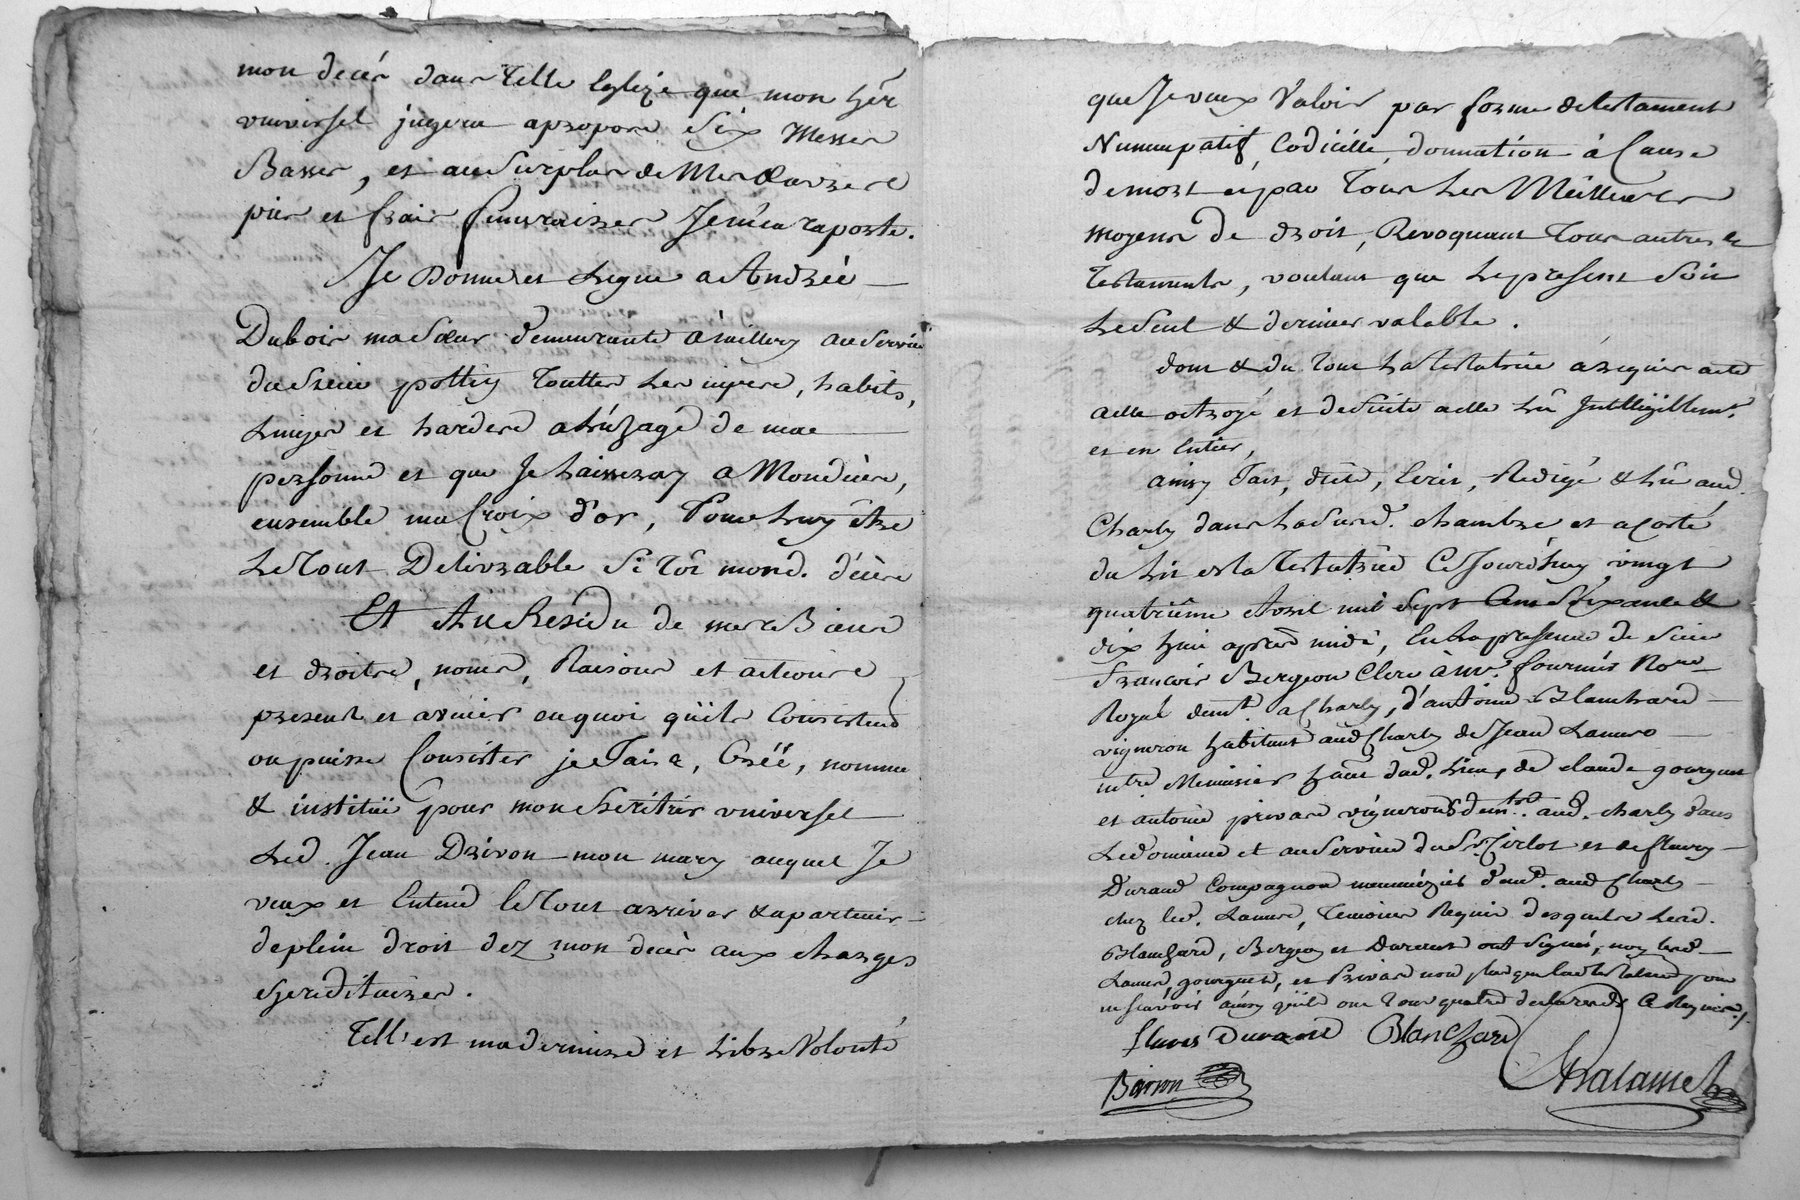 mon decés dans telle Eglize que mon hér
universel jugera apropore Six Messes
Basses, et au Surplus de Mes œuvres
pies et frais funeraires Je m'en raporte.
Je Donne et Legue a Andrée
Dubois ma Sœur demeurante à millery au Service
du Sieur pottin touttes les nipes, habits,
Linges et hardes a L'uzage de ma
personne et que Je Laisseray a Mondéces,
ensemble ma Croix d'or, Pour Luy être
Le Tout Delivrable Si tôt mond. décés
Et Au Residu de mes Biens
et droits, noms, Raisons et actions
presents et avenir en quoi qu'ils Consistent
ou puisse Consister je fais, Créé, nomme
& instituë pour mon Heritier universel
Led. Jean Drivon mon mary auquel Je
veux et Entend le Tout arriver & apartenir
de plein droit dez mon decés aux charges
Hereditaires.
Tell'est ma derniere et Libre Volonté
que Je veux Valoir par forme de testament
Nuncupatif, Codicille, donnation à Cause
de mort et par Tous Les Meilleurs
moyens de droit, Revoquant Tous autres
Testaments, voulant que Le present Soit
Le Seul & dernier valable.
dont & du Tout La testatrice à requis acte
a elle octroyé et de Suite a elle Lû Intelligiblemt.
et en Entier,
ainsy fait, dicté, Ecrit, Redigé & Lû aud.
Charly dans La Susd. chambre et a Costé
du Lit est la Testatrice Ce Jourd'huy vingt
quatriême Avril mil Sept Cent Soixante &
dix huit après midi, En La presence de Sieur
François Bergeon Clerc à Mr. fournier Nore
Royal demt. a Charly, d'antoine Blanchard
vigneron habitant aud Charly de Jean Lamure
mtre Menuisier had. Lieu, de claude gourguet
et antoine privard vignerons demts. aud. charly dans
Le domaine et au Service du Sr. Cirlot et de fleury
Durand Compagnon menuizier aud Charly
chez led. Lamure, Temoins Requis desquels Lesd.
Blanchard, Bergeon et Durand ont Signé, non Lesd
Lamure, gourguet, et Privard non plus que lad testatrice pour
ne Scavoir ainsy qu'ils ont Tous quatre declaré de Ce Requis.
fleury Durand Blanchard
Bergeon
Chalamel